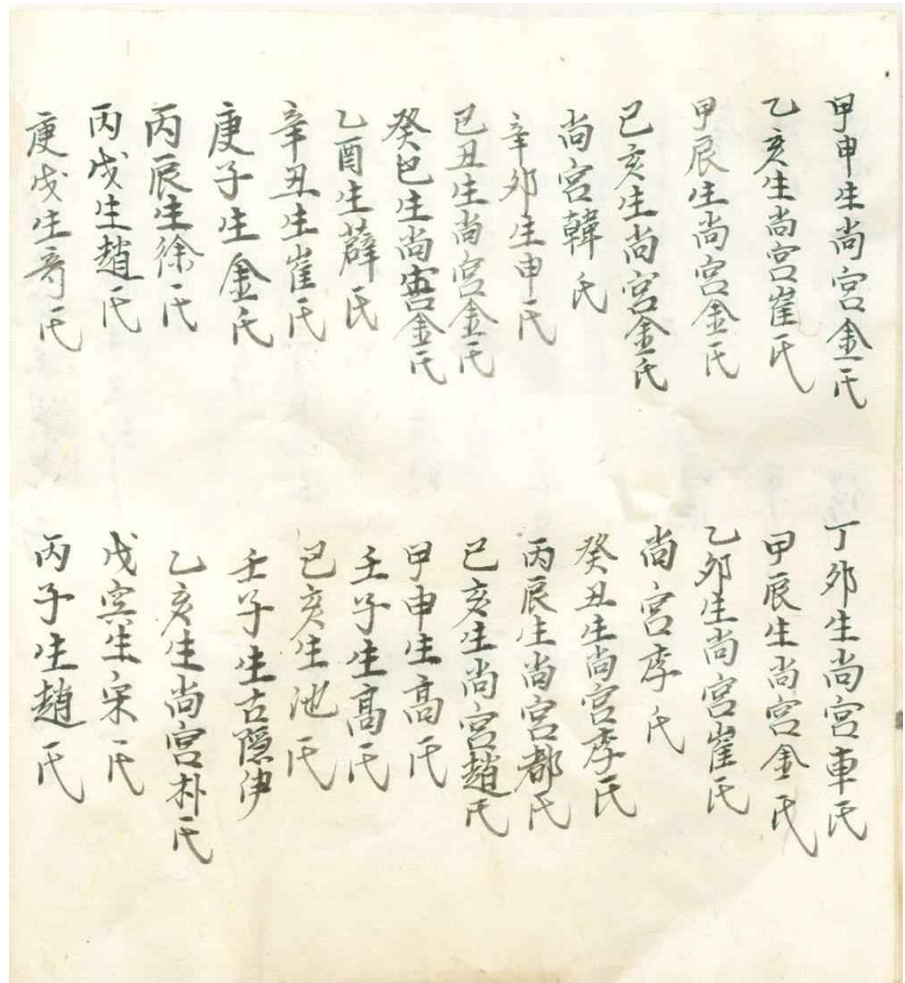 甲申生尚宮金氏
乙亥生尚宮崔氏
甲辰生尚宮金氏
己亥生尚宮金氏
尚宮韓氏
辛卯生申氏
己丑生尚宮金氏
癸巳生尚宮金氏
乙酉生薛氏
辛丑生崔氏
庚子生金氏
丙辰生徐氏
丙戌生趙氏
庚戌生奇氏
丁卯生尚宮車氏
甲辰生尚宮金氏
乙卯生尚宮崔氏
尚宮李氏
癸丑生尚宮李氏
丙辰生尚宮都氏
己亥生尚宮趙氏
甲申生高氏
壬子生高氏
己亥生池氏
壬子生古隱伊
乙亥生尚宮朴氏
戊寅生宋氏
丙子生趙氏